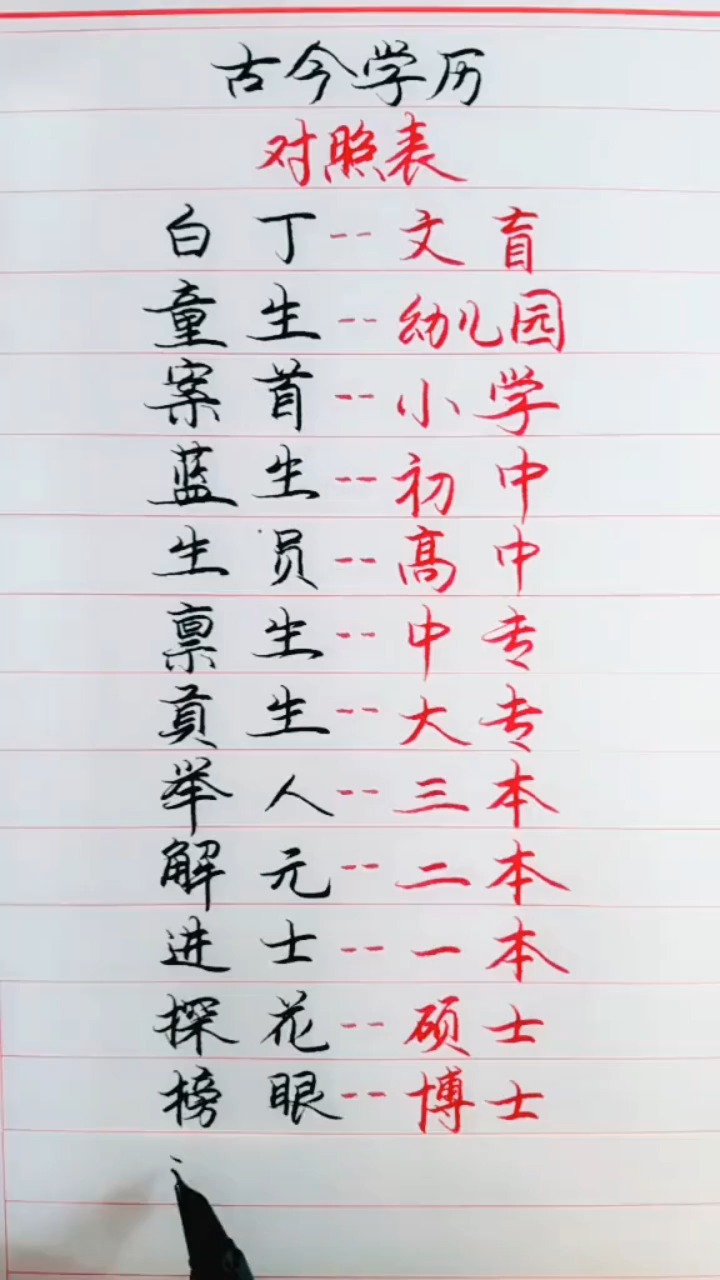 古今学历
对照表
白丁--文盲
童生--幼儿园
案首--小学
蓝生--初中
生员--高中
禀生--中专
贡生--大专
举人--三本
解元--二本
进士--一本
探花--硕士
榜眼--博士